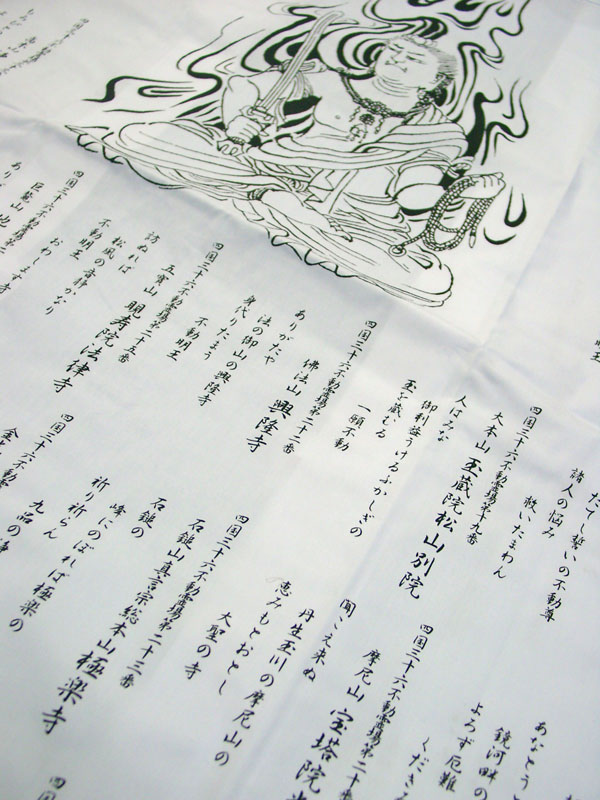 だてし誓いの不動尊
諸人の悩み
救いたまわん
四国三十六不動霊場第十九番
大本山 玉蔵院松山別院
人はみな
御利益うけるふかしぎの
玉を蔵むる
一願不動
四国三十六不動霊場第二十二番
佛法山 興隆寺
ありがたや
法の御山の興隆寺
身代りたまう
不動明王
四国三十六不動霊場第二十五番
五寳山 明寿院法律寺
訪ぬれば
松風の音静かなり
不動明王
おわします
四国三十六不動霊場
あなとうと
鏡河畔の
よろず厄難
くださる
四国三十六不動霊場第二十番
摩尼山 宝塔院
聞こえ来ぬ
丹生玉川の摩尼山の
恵みもとおとし
大聖の寺
四国三十六不動霊場第二十三番
石鎚山真言宗総本山極楽寺
石鎚の
峰にのぼれば極楽の
祈り祈らん
九品の浄
四国三十六不動霊場